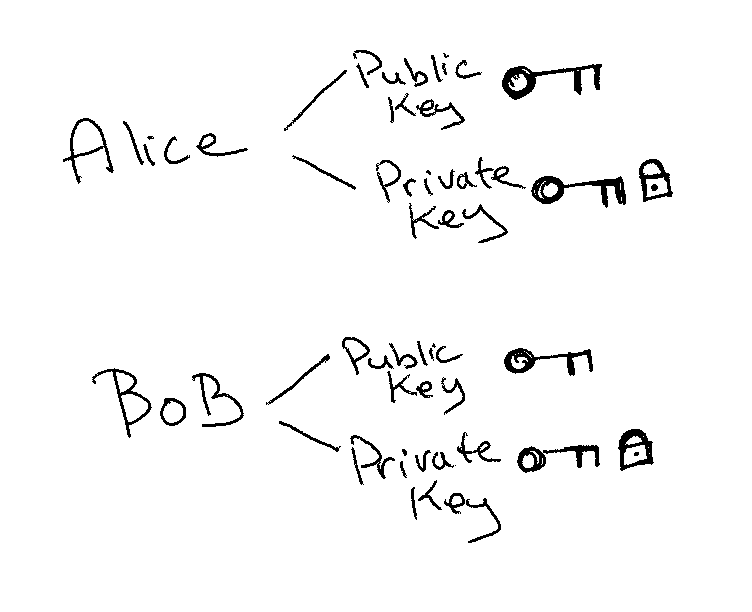 Alice
Public
Key
Private
Key
BoB
Public
Key
Private
Key